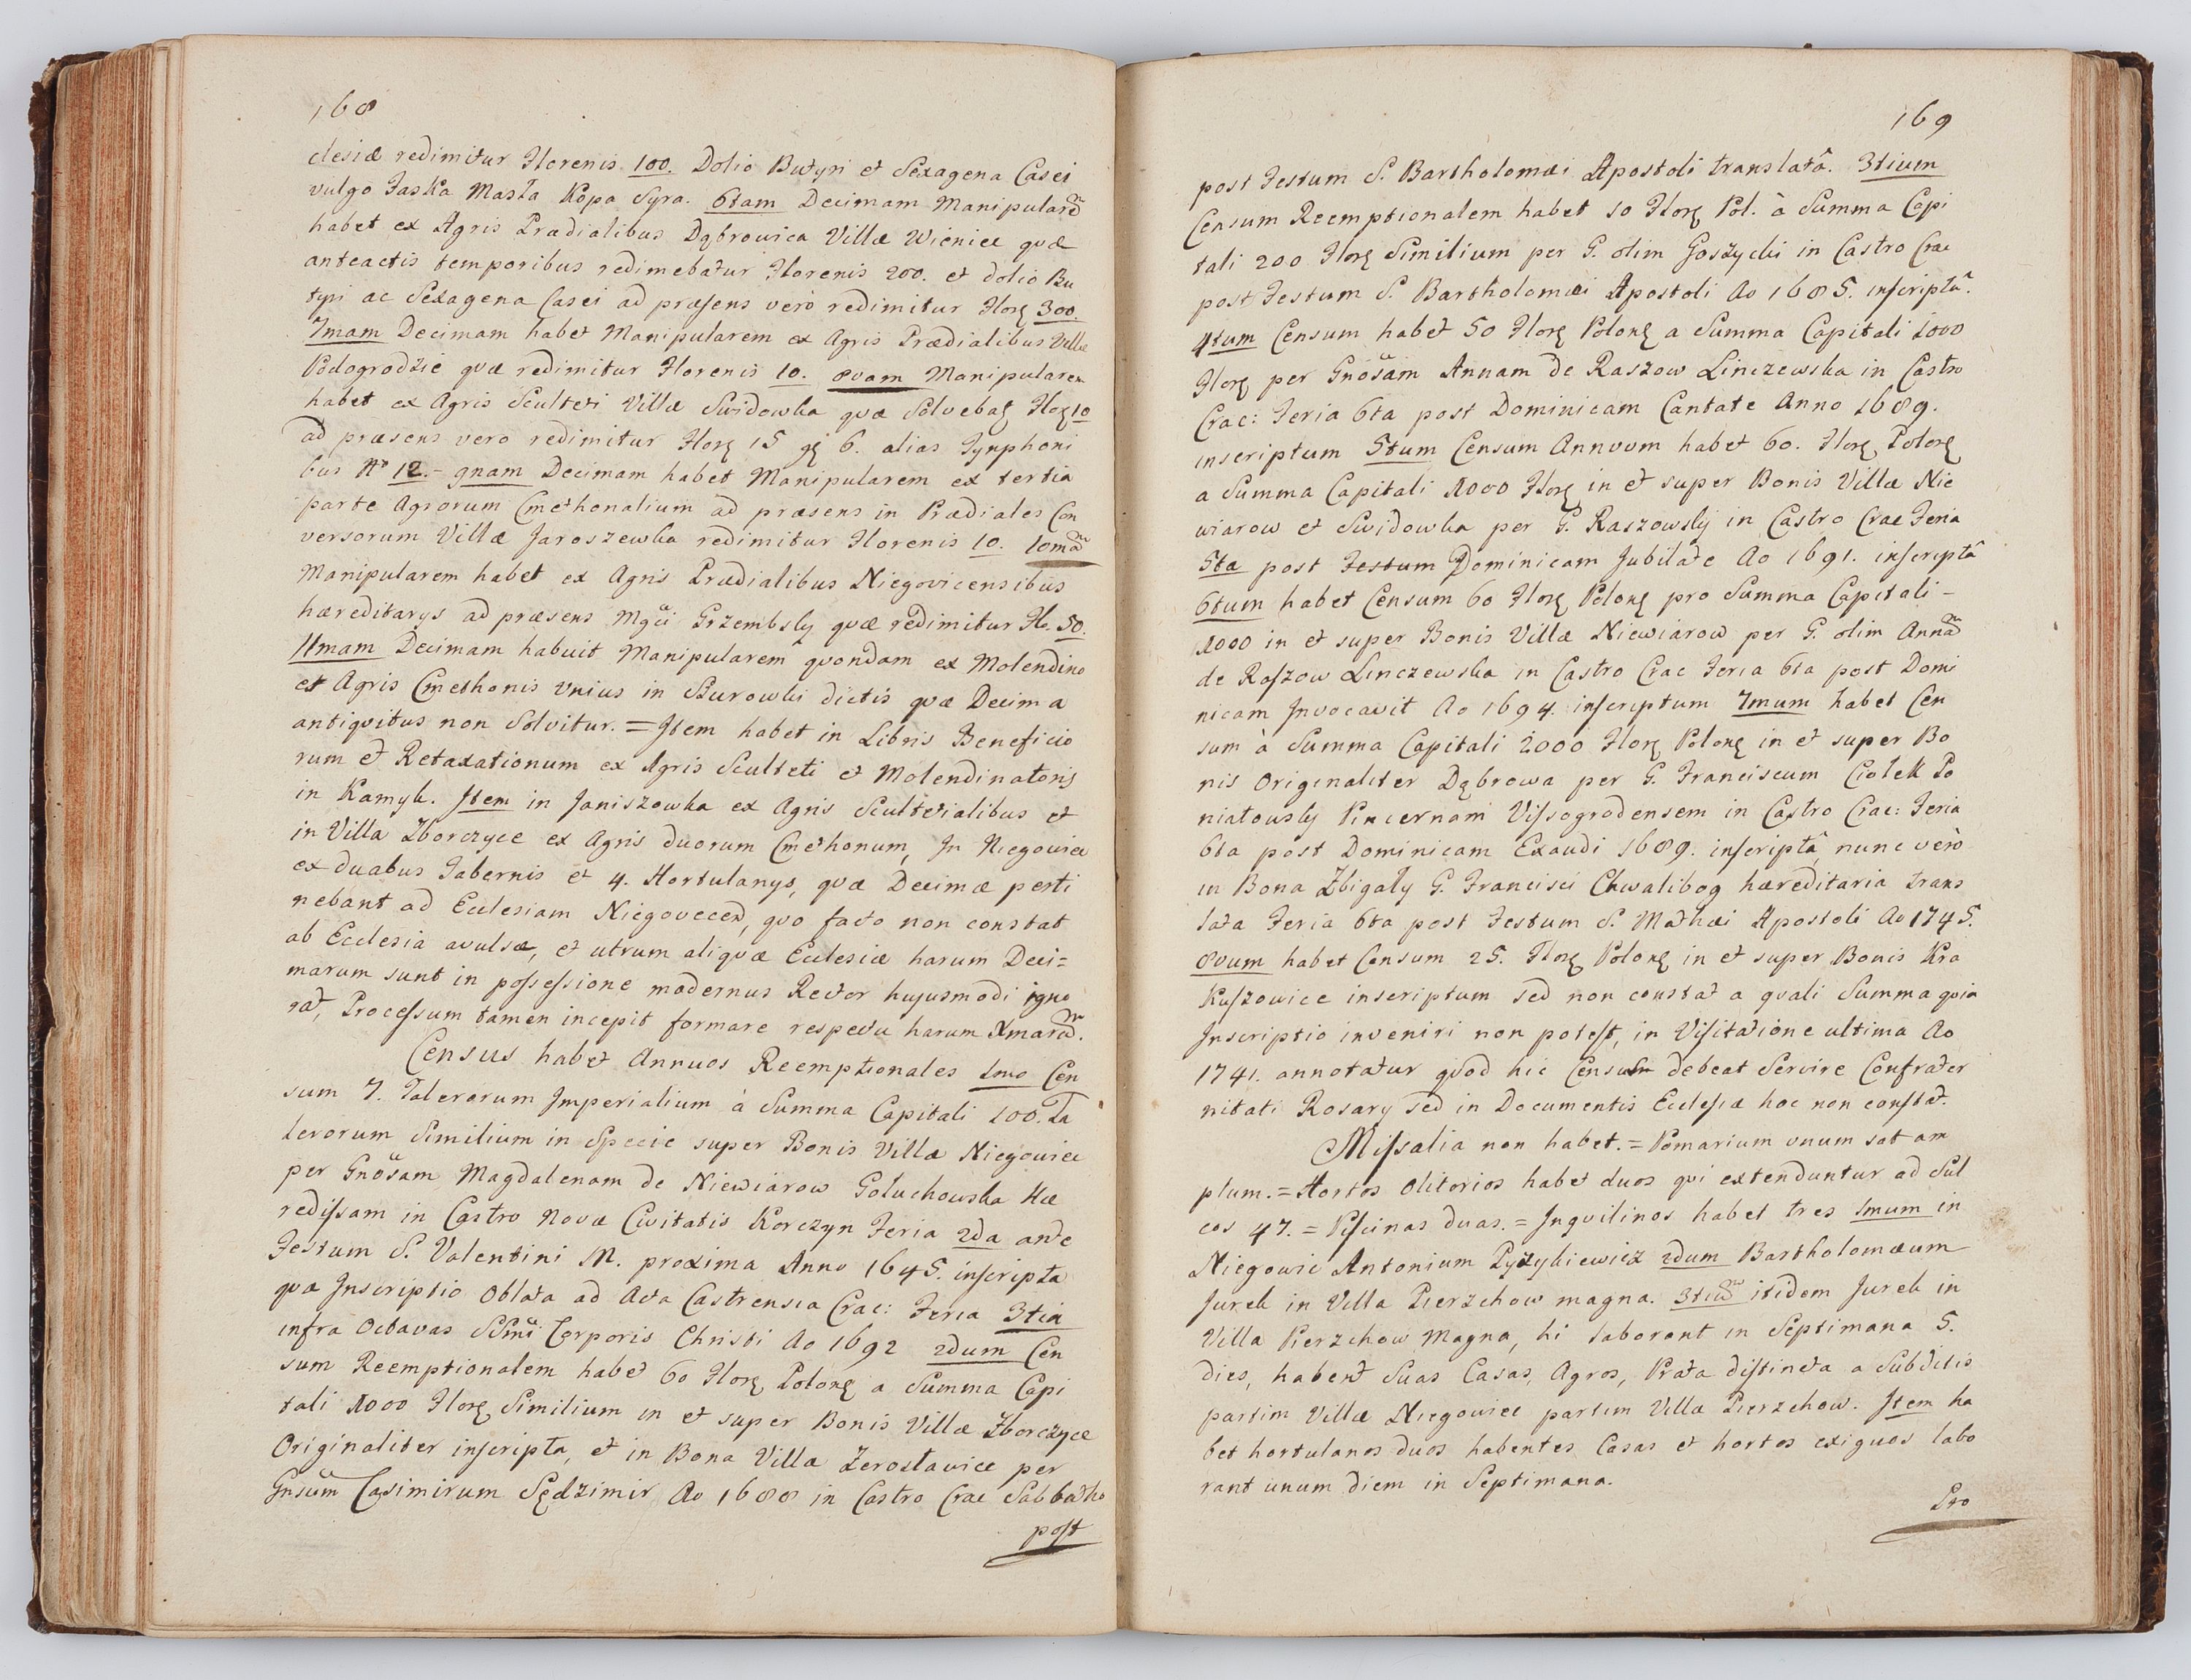 168
clesiæ redimitur Florenis 100. Dolio Butyri et Sexagena Casei
vulgo Faska Masła Kopa Syra. 6tam Decimam Manipularem
habet ex Agris Prædialibus Dąbrowica Villæ Wieniec quæ
anteactis temporibus redimebatur Florenis 200. et dolio Bu
tyri ac Sexagena Casei ad præsens verò redimitur Flor 300.
7mam Decimam habet Manipularem ex Agris Prædialibus Villæ
Podogrodzie quæ redimitur Florenis 10. 8vam Manipularem
habet ex Agris Sculteti Villæ Swidowka quæ Solvebat Flor 10
ad præsens vero redimitur Flor 15 gr 6. alias Tynphoni
bus No 12.- 9nam Decimam habet Manipularem ex tertia
parte Agrorum Cmethonalium ad præsens in Prædiales Con
versorum Villæ Jaroszewka redimitur Florenis 10. 10mam
Manipularem habet ex Agris Prædialibus Niegovicensibus
hæreditarys ad præsens Mgci Grzembsky quæ redimitur Fl. 50.
11mam Decimam habuit Manipularem quondam ex Molendino
et Agris Cmethonis Unius in Burowki dictis quæ Decima
antiquitus non Solvitur. = Item habet in Libris Beneficio
rum et Retaxationum ex Agris Sculteti et Molendinatoris
in Kamyk. Item in Janiszowka ex Agris Scultetialibus et
in Villa Zborczyce ex Agris duorum Cmethonum, In Niegowice
ex duabus Tabernis et 4. Hortulanys, quæ Decimæ perti
nebant ad Ecclesiam Niegovecen, quo facto non constat
ab Ecclesia avulsæ, et utrum aliquæ Ecclesiæ harum Deci=
marum sunt in possessione modernus Rector hujusmodi igno
rat, Processum tamen incepit formare respectu harum Xmarum.
Census habet Annuos Reemptionales 1mo Cen
sum 7. Talerorum Imperialium à Summa Capitali 100. Ta
lerorum Similium in Specie super Bonis Villæ Niegowice
per Gnosam Magdalenam de Niewiarow Goluchowska Hæ
redissam in Castro Novæ Civitatis Korczyn Feria 2da ante
Festum S. Valentini M. proxima Anno 1645. inscripta
quæ Inscriptio Oblata ad Acta Castrensia Crac: Feria 3tia
infra Octavas SSmi Corporis Christi Ao 1692 2dum Cen
sum Reemptionalem habet 60 Flor Polon a Summa Capi
tali 1000 Flor Similium in et super Bonis Villæ Zborczyce
Originaliter inscripta, et in Bona Villa Zerosławice per
Gnsum Casimirum Sędzimir Ao 1688 in Castro Crac Sabbatho
post
169
post Festum S. Bartholomæi Apostoli translatâ. 3tium
Censum Reemptionalem habet 10 Flor Pol. à Summa Capi
tali 200 Flor Similium per G. olim Goszycki in Castro Crac
post Festum S. Bartholomæi Apostoli Ao 1685. inscriptâ.
4tum Censum habet 50 Flor Polon a Summa Capitali 1000
Flor per Gnosam Annam de Raszow Linczewska in Castro
Crac: Feria 6ta post Dominicam Cantate Anno 1689.
inscriptum 5tum Censum Annuum habet 60. Flor Polon
a Summa Capitali 1000 Flor in et super Bonis Villæ Nie
wiarow et Swidowka per G. Raszowsky in Castro Crac Feria
5ta post Festum Dominicam Jubilate Ao 1691. inscriptâ
6tum habet Censum 60 Flor Polon pro Summa Capitali -
1000 in et super Bonis Villæ Niewiarow per G. olim Annam
de Raszow Linczewska in Castro Crac Feria 6ta post Domi
nicam Invocavit Ao 1694. inscriptum 7mum habet Cen
sum à Summa Capitali 2000 Flor Polon in et super Bo
nis Originaliter Dąbrowa per G. Franciscum Ciołek Po
niatowsky Pincernam Vissogrodensem in Castro Crac: Feria
6ta post Dominicam Exaudi 1689. inscriptâ, nunc verò
in Bona Zbigały G. Francisci Chwalibog hæreditaria trans
lata Feria 6ta post Festum S. Mathæi Apostoli Ao 1745.
8vum habet Censum 25. Flor Polon in et super Bonis Kra
Kuszowice inscriptum sed non constat a quali Summa quia
Inscriptio inveniri non potest, in Visitatione ultima Ao
1741. annotatur quod hic Census debeat Servire Confrater
nitati Rosary sed in Documentis Ecclesiæ hoc non constat.
Missalia non habet. = Pomarium unum sat am
plum. = Hortos Olitorios habet duos qui extenduntur ad Sul
cos 47. = Piscinas duas. = Inquilinos habet tres 1mum in
Niegowic Antonium Pyzykiewicz 2dum Bartholomæum
Jurek in Villa Pierzchow magna. 3tium itidem Jurek in
Villa Pierzchow Magna, hi laborant in Septimana 5.
dies, habent Suas Casas, Agros, Prata distincta a Subditis
partim Villæ Niegowice partim Villa Pierzchow. Item ha
bet hortulanos duos habentes Casas et hortos exiguos labo
rant unum diem in Septimana.
Pro